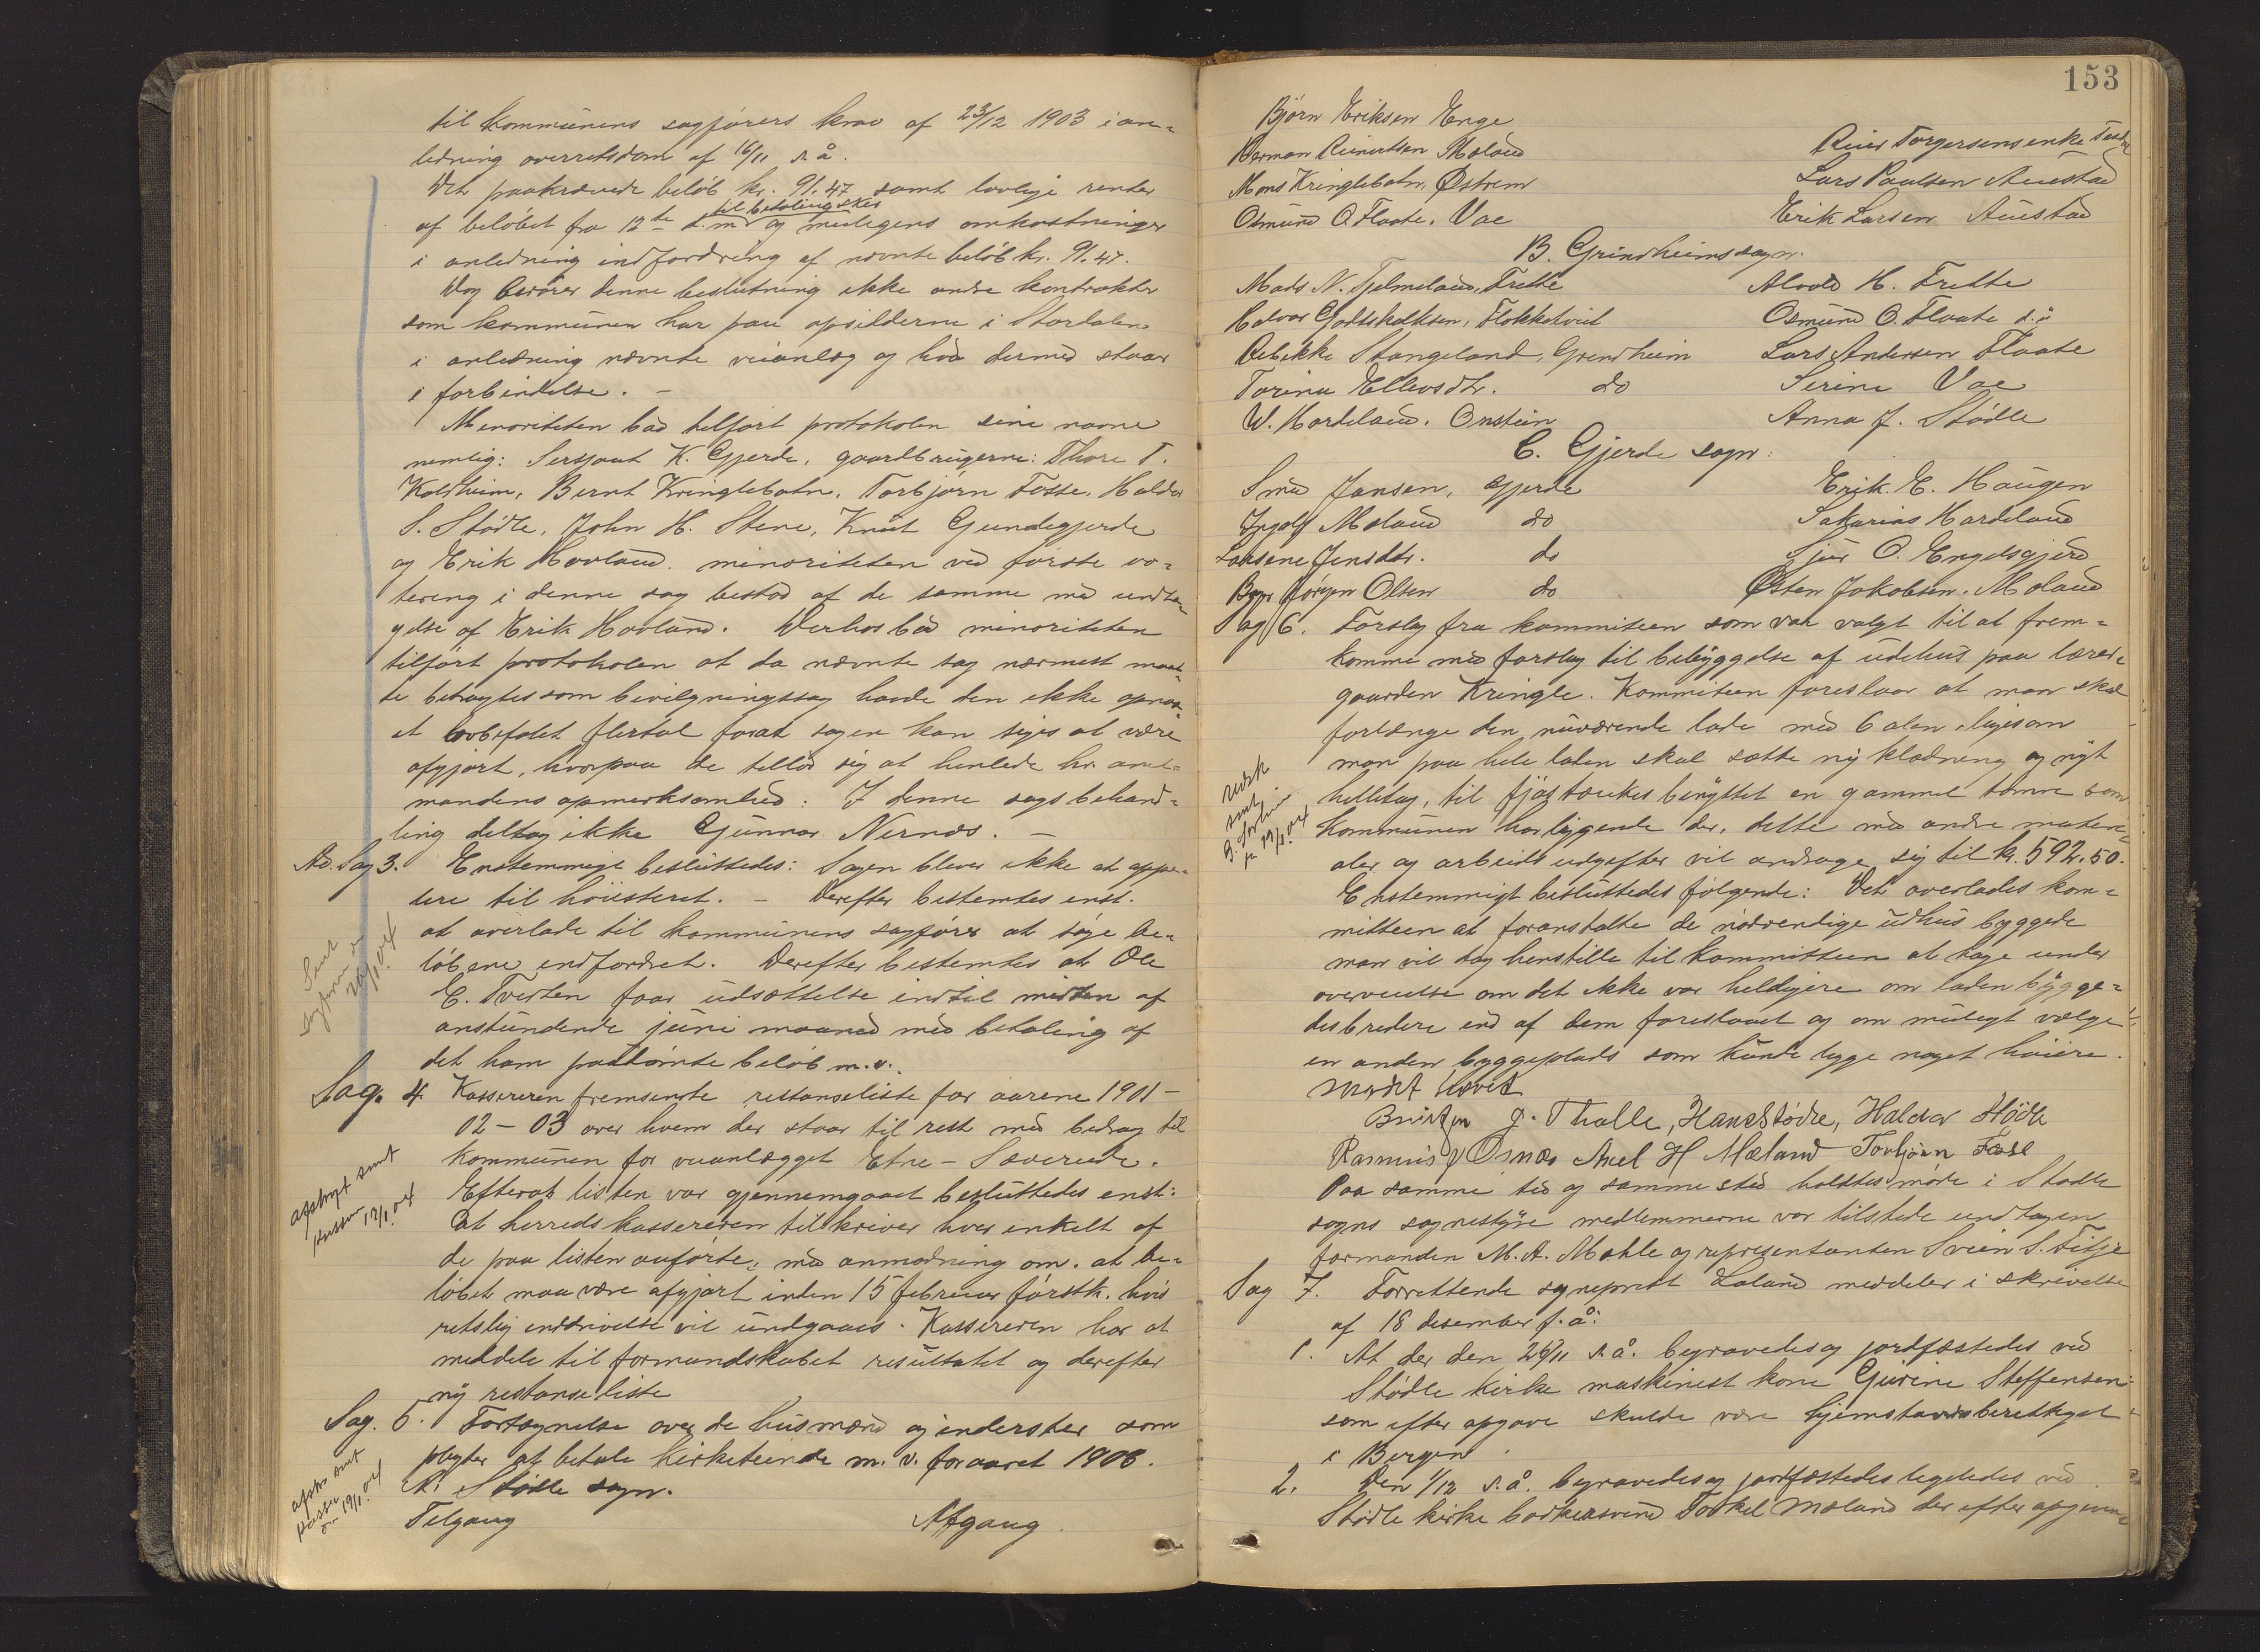 til kommunens sagførers krav af 23/12 1903 i an-
ledning overretsdom af 16/11 s. å.
Det paakrævede beløb kr. 91.47 samt lovlige renter
til betaling skes
af beløbet fra 12te d. m. og muligens omkostninger
i anledning indfordring af nævnte beløb kr. 91.47.
Dog berører denne beslutning ikke andre kontrakter
som kommunen har paa opsidderne i Stordalen
i anledning nævnte veianlæg og hva dermed staar
i forbindelse. -
Minoriteten bad tilført protokolen sine navne
nemlig: Sersjant K. Gjerde, gaardbrugerne: Thore T.
Kaldheim, Bernt Kringlebotn, Torbjørn Fosse, Haldor
S. Stødle, John H. Stene, Knut Gundegjerde
og Erik Hovland. minoriteten ved første vo-
tering i denne sag bestod af de samme med undta-
gelse af Erik Hovland. Derhos bad minoriteten
tilført protokolen at da nævnte sag nærmest maat-
te betragtes som bevilgningssag havde den ikke opnaa-
et lovbefalet flertal forat sagen kan siges at være
afgjort, hvorpaa de tillod sig at henlede hr. amt-
mandens opmerksomhed: I denne sags behand-
ling deltog ikke Gunnar Nernæs. -
Ad. Sag 3. Enstemmige besluttedes: Sagen blever ikke at appe-
lere til høiesteret. - Derefter bestemtes enst.
at overlade til kommunens sagfører at søge be-
løbene indfordret. Derefter bestemtes at Ole
E. Tveiten faar udsættelse indtil midten af
anstundende juni maaned med betaling af
det ham paadømte beløb m. v.
Sag. 4. Kassereren fremsendte restanseliste for aarene 1901-
02-03 over hvem der staar til rest med bedrag til
kommunen for veianlægget Etne - Sæverude.
Efterat listen var gjennemgaaet besluttedes enst:
At herredskassereren tilskriver hver enkelt af
de paa listen anførte, med anmodning om at be-
løbet maa være afgjort inden 15 februar førstk. hvis
retslig inddrivelse vil undgaaes. Kassereren har at
meddele til formandskabet resultatet og derefter
ny restanseliste
afskrift sendt
kasser 12/1.04
Sag. 5. Fortegnelse over de husmænd og inderster som
plegter at betale kirketiende m. v. for aaret 1903.
A. Stødle sogn.
Tilgang Afgang.
153
Bjørn Eriksen Enge
Herman Reinertsen Mæland
Reier Torgersens enke
Mons Kringlebotn, Østrem
Lars Paulsen Austad
Osmund O. Flaate, Vae
Erik Larsen Austad
B. Grindheims sogn.
Mads N. Tjelmeland, Frette
Alvald H. Frette
Halvor Godtskalksen, Flokketveit
Osmund O. Flaate s. å
Rebekke Stangeland, Grindheim
Lars Andersen Flaate
Torina Ellevsdtr. do
Serine Vae
W. Hardeland. Onstein
Anna J. Stødle
C. Gjerde sogn:
Smed Jansen, Gjerde
Erik. E. Haugen
Ingolf Mæland do
Sakarias Hardeland
Larsene Jensdtr. do
Sjur O. Engelsgjerd
Jørgen Olsen do
Østen Jakobsen. Mæland
Sag 6. Forslag fra kommiteen som var valgt til at frem-
komme med forslag til bebyggelse af udehus paa lærer-
gaarden Kringle. Kommiteen foreslaar at man skal
forlænge den nuværende lade med 6 alen, ligesom
man paa hele laden skal sætte ny klædning og nyt
helletag, til fjøs tænkes benyttet en gammel tømre som
kommunen har liggende der, dette med andre materi-
aler og arbeids udgifter vil andrage sig til kr. 592.50.
Enstemmigt besluttedes følgende: Det overlades kom-
mitteen at foranstalte de nødvendige udhus byggede
man vil dog henstille til kommitteen at tage under
overveielse om det ikke var heldigere om laden bygge-
des bredere end af dem foreslaaet og om muligt vælge
en anden byggeplads som kunde ligge noget høiere.
Mødet hævet
J. Thalle, Hans Stødle, Haldor Stødle
Rasmus J Osnæs Axel H Mæland Torbjørn Fosse
Paa samme tid og samme sted holdtes møde i Stødle
sogns sognestyre medlemmerne var tilstede undtagen
formanden M. A. Mæhle og representanten Svein S. Fitje
Sag 7. Forrettende sogneprest Laland meddeler i skrivelse
af 18 desember f. å:
1. At der den 26/11 s. å. begravedes og jordfæstedes ved
Stødle kirke maskinist kone Gurine Steffensen
som efter opgave skulde være hjemstavnsberettiget
i Bergen.
2. Den 1/12 s. å. begravedes og jordfæstedes ligeledes ved
Stødle kirke bødkersvend Torkel Mæland der efter opgiven-